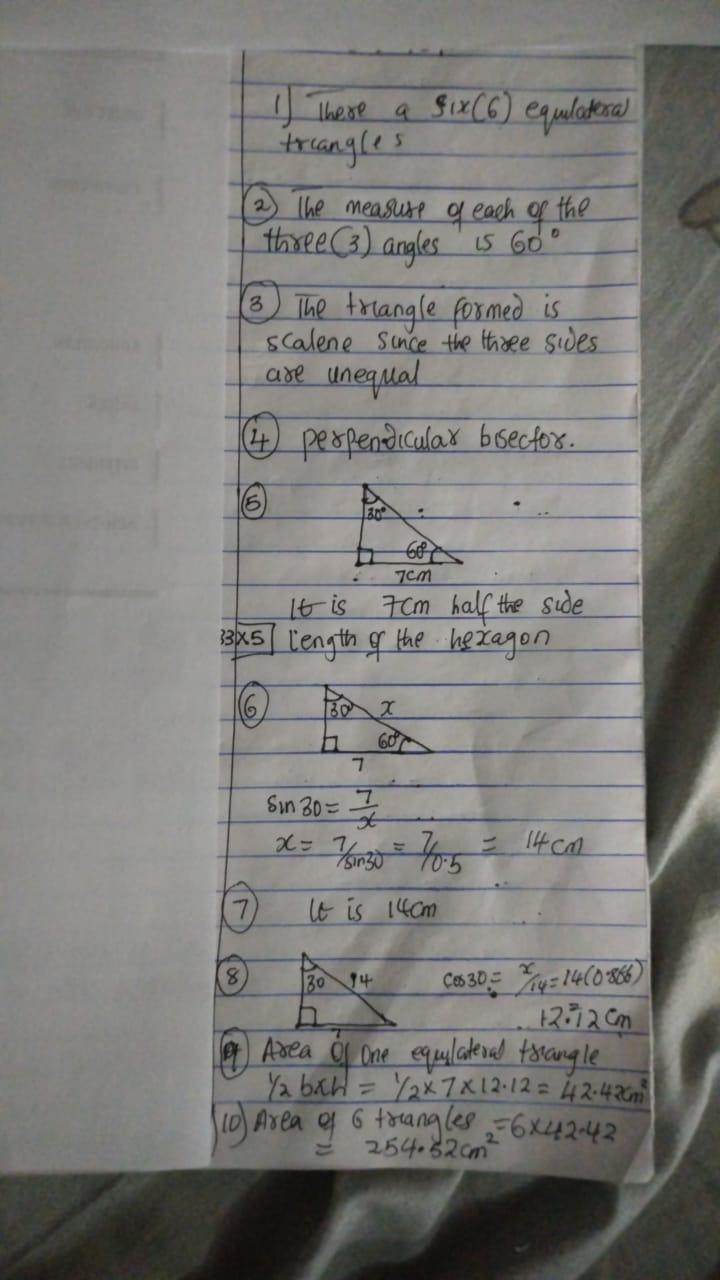 1) There a six(6) equilateral
triangles
2) The measure of each of the
three(3) angles is 60°
3) The triangle formed is
scalene since the three sides
are unequal
4) perpendicular bisector.
5)
30°
60°
7cm
It is 7cm half the side
33x5 length of the hexagon
6)
30° x
60°
7
sin 30 = 7/x
x = 7/sin30 = 7/0.5 = 14cm
7) It is 14cm
8) 30 14 cos30 = x/14 = 14(0.866)
= 12.12 cm
9) Area of one equilateral triangle
1/2 bxh = 1/2 x 7 x 12.12 = 42.42cm²
10) Area of 6 triangles = 6x42.42
= 254.52cm²